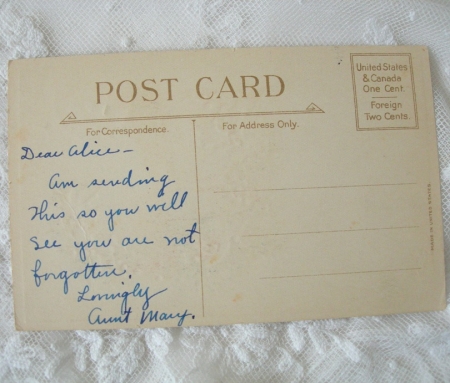 POST CARD
United States
& Canada
One Cent.
Foreign
Two Cents.
For Correspondence.
For Address Only.
Dear Alice —
Am sending
this so you will
see you are not
forgotten.
Lovingly
Aunt Mary.
MADE IN UNITED STATES